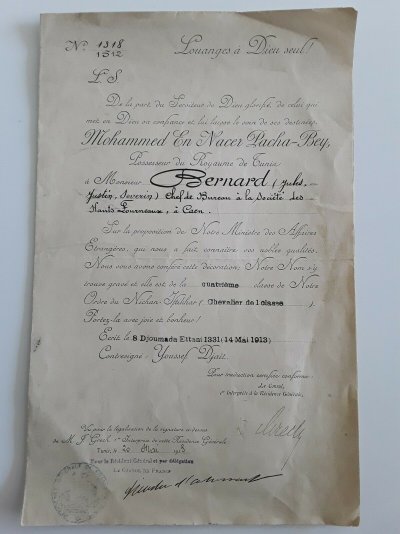 N° 1318
1512
Louanges à Dieu seul!
L S
De la part du Serviteur de Dieu glorifié, de celui qui
met en Dieu sa confiance et lui laisse le soin de ses destinées,
Mohammed En Nacer Pacha-Bey,
Possesseur du Royaume de Tunis
à Monsieur BERNARD (Jules, -
Justin, Severin) Chef de Bureau à la Société des
Hauts Fourneaux, à Caen.
Sur la proposition de Notre Ministre des Affaires
Etrangères, qui nous a fait connaître vos nobles qualités.
Nous vous avons conféré cette décoration. Notre Nom s'y
trouve gravé et elle est de la quatrième classe de Notre
Ordre du Nichan-Iftikhar (Chevalier de 1 classe).
Portez-la avec joie et bonheur!
Ecrit le 8 Djoumada Ettani 1331 (14 Mai 1913)
Contresigné: Youssef Djaït.
Pour traduction certifiée conforme:
Le Consul,
1er Interprète à la Résidence Générale,
Vu pour la légalisation de la signature ci-dessus
de M. 1er Interprète de cette Résidence Générale
Tunis, le 20 Mai 1913
Pour le Résident Général et par délégation
LE CONSUL DE FRANCE